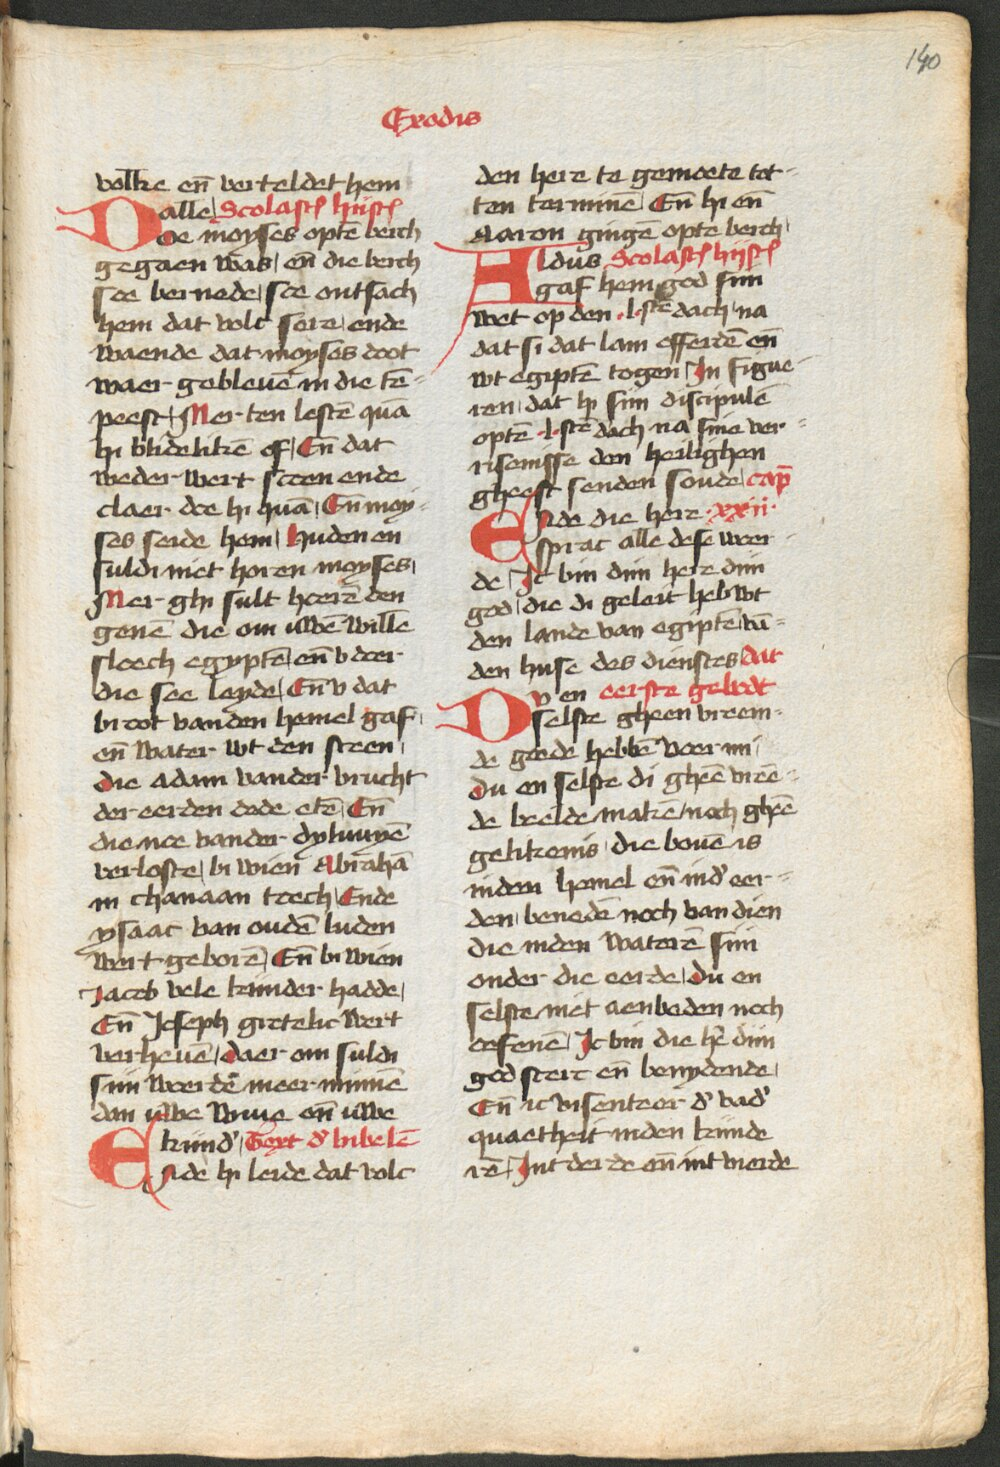 140
Exodis
volke en̄ verteldet hem
alle Scolast hijst
Doe moyses opte berch
gegaen was en̄ die berch
see bernede soe ontsach
hem dat volc sere ende
waende dat moyses doot
waer gebleuē in die tē-
peest Mer ten lestē quā
hi blidelikē of En̄ dat
weder wert scoen ende
claer doe hi quā En̄ moy-
ses seide hem Huden en
suldi niet horen moyses
Mer ghi sult hoerē den
genē die om uwē wille
sloech egyptē en̄ v doer
die see leyde En̄ v dat
broot vanden hemel gaf
en̄ water wt den steen
die adam vander vrucht
der eerden dede etē En̄
die noe vander dyluuyē
verloste bi wien Abrahā
in chanaan toech Ende
ysaac van oudē luden
wert geborē En̄ bi wien
Jacob vele kinder hadde
En̄ Joseph grotelic wert
verheuē Daer om suldi
sijn woerdē meer minnē
dan uwe wiue en̄ uwe
kind' Text d' bibelē
Ende hi leide dat volc
den here te gemoete tot-
ten terminē En̄ hi en̄
Aaron gingē opte berch
Aldus Scolast hijst
gaf hem god sijn
wet op den .l.stē dach na
dat si dat lam offerdē en̄
wt egiptē togen In figue-
ren dat hi sijn discipulē
optē .l.stē dach na sine ver-
risenisse den heilighen
gheest senden soude cap̄
Ende die here .xxij.
sprac alle dese woer-
de Ic bin dijn here dijn
god die di geleit heb wt
den lande van egiptē vā-
den huse des dienstes dat
Dv en eerste gebodt
selste gheen vreem-
de gode hebbē voer mi
Du en selste di gheē vrē-
de beelde makē noch gheē
gelikenis die bouē is
inden hemel en̄ ind' eer-
den benedē noch van dien
die inden waterē sijn
onder die eerde Du en
selste niet aenbeden noch
oefenē Ic bin die hē dijn
god sterc en̄ benydende
En̄ ic visenteer d' vad'
quaetheit inden kinde
rē Int derde en̄ int vierde